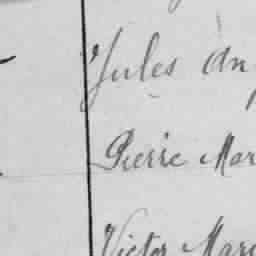 Jules An
Pierre Mar
Victor Mar